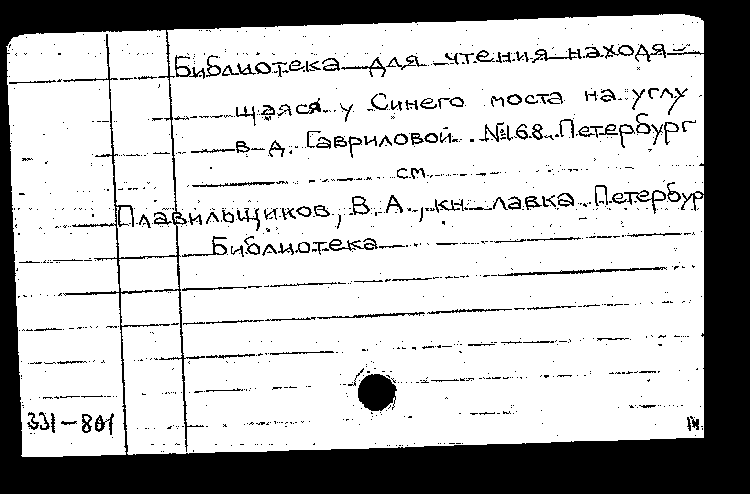 Библиотека для чтения находя-
щаяся у Синего моста на углу
в д. Гавриловой. №168. Петербург
см.
Плавильщиков, В. А., кн лавка. Петербур
Библиотека
331-801